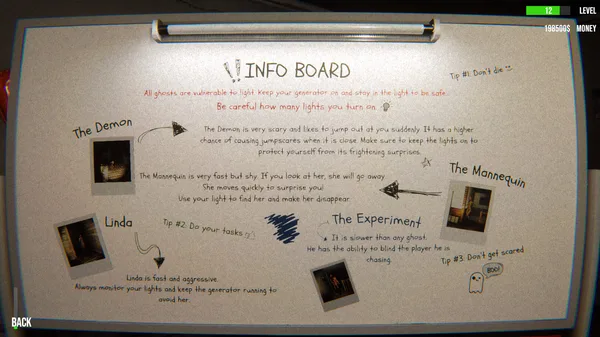 12 LEVEL
198500$ MONEY
!! INFO BOARD
Tip #1. Don't die
All ghosts are vulnerable to light. Keep your generator on and stay in the light to be safe.
Be careful how many lights you turn on
The Demon
The Demon is very scary and likes to jump out at you suddenly. It has a higher
chance of causing jumpscares when it is close. Make sure to keep the lights on to
protect yourself from its frightening surprises.
The Mannequin
The Mannequin is very fast but shy. If you look at her, she will go away.
She moves quickly to surprise you!
Use your light to find her and make her disappear.
Linda
Tip #2. Do your tasks
Linda is fast and aggressive.
Always monitor your lights and keep the generator running to
avoid her.
The Experiment
It is slower than any ghost.
He has the ability to blind the player he is
chasing.
Tip #3. Don't get scared
BOO!
BACK